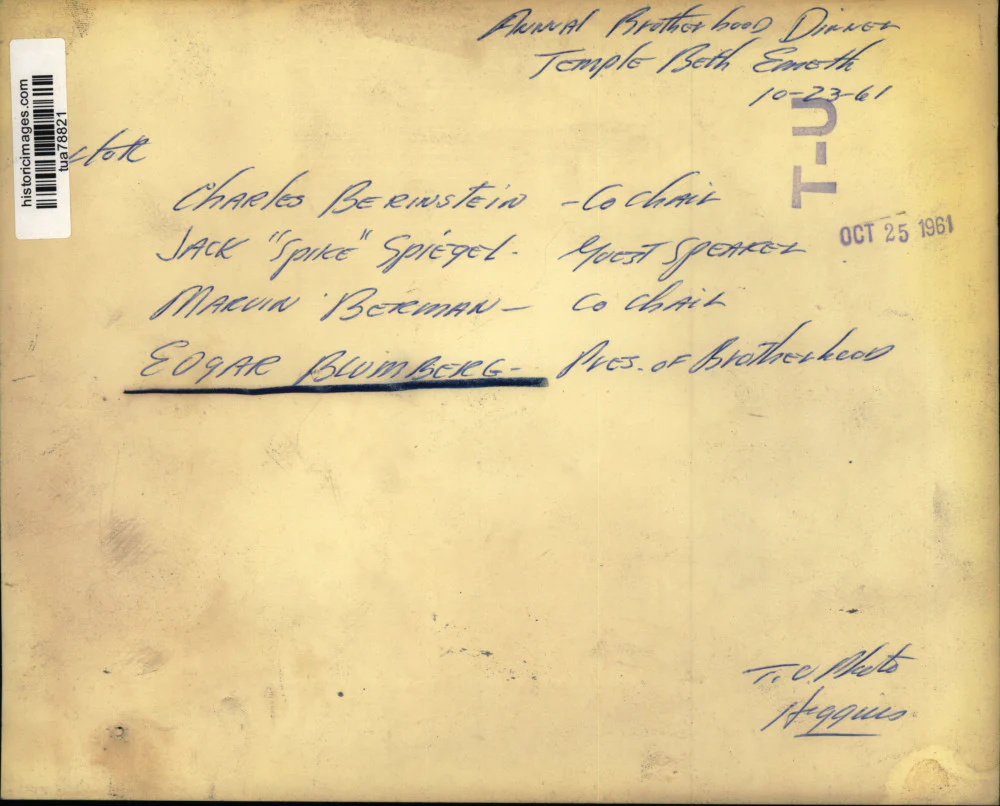 Annual Brotherhood Dinner
Temple Beth Emeth
10-23-61
historicimages.com
tua78821
T-U
L to R
Charles Berinstein - Co Chair
OCT 25 1961
Jack "Spike" Spiegel - Guest Speaker
Marvin Berman - Co Chair
Edgar Blumberg - Pres. of Brotherhood
T.U. Photo
Higgins